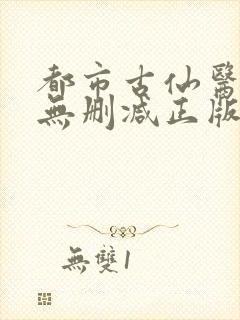 都市古仙醫
無删减正版
無雙1